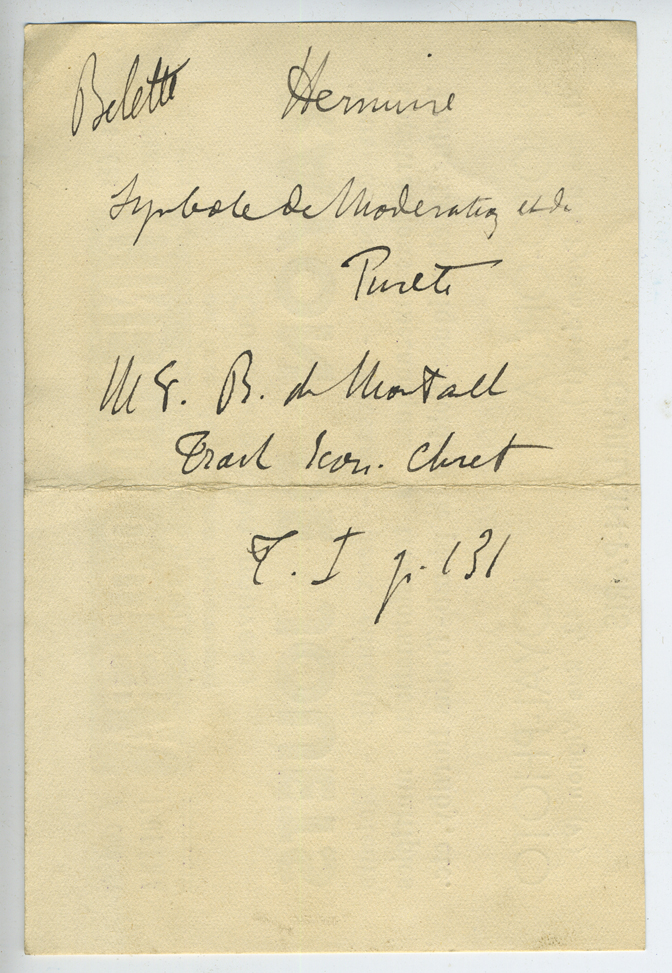 Belette Hermine
Symbole de Moderation et de
Pureté
Mgr. B. de Montault
Trait Icon. Chret
T. I p. 131